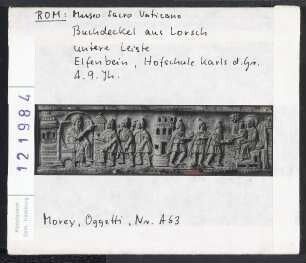 ROM: Museo Sacro Vaticano
Buchdeckel aus Lorsch
untere Leiste
Elfenbein, Hofschule Karls d.Gr.
A. 9. Jh.
121984
Morey, Oggetti, Nr. A 63